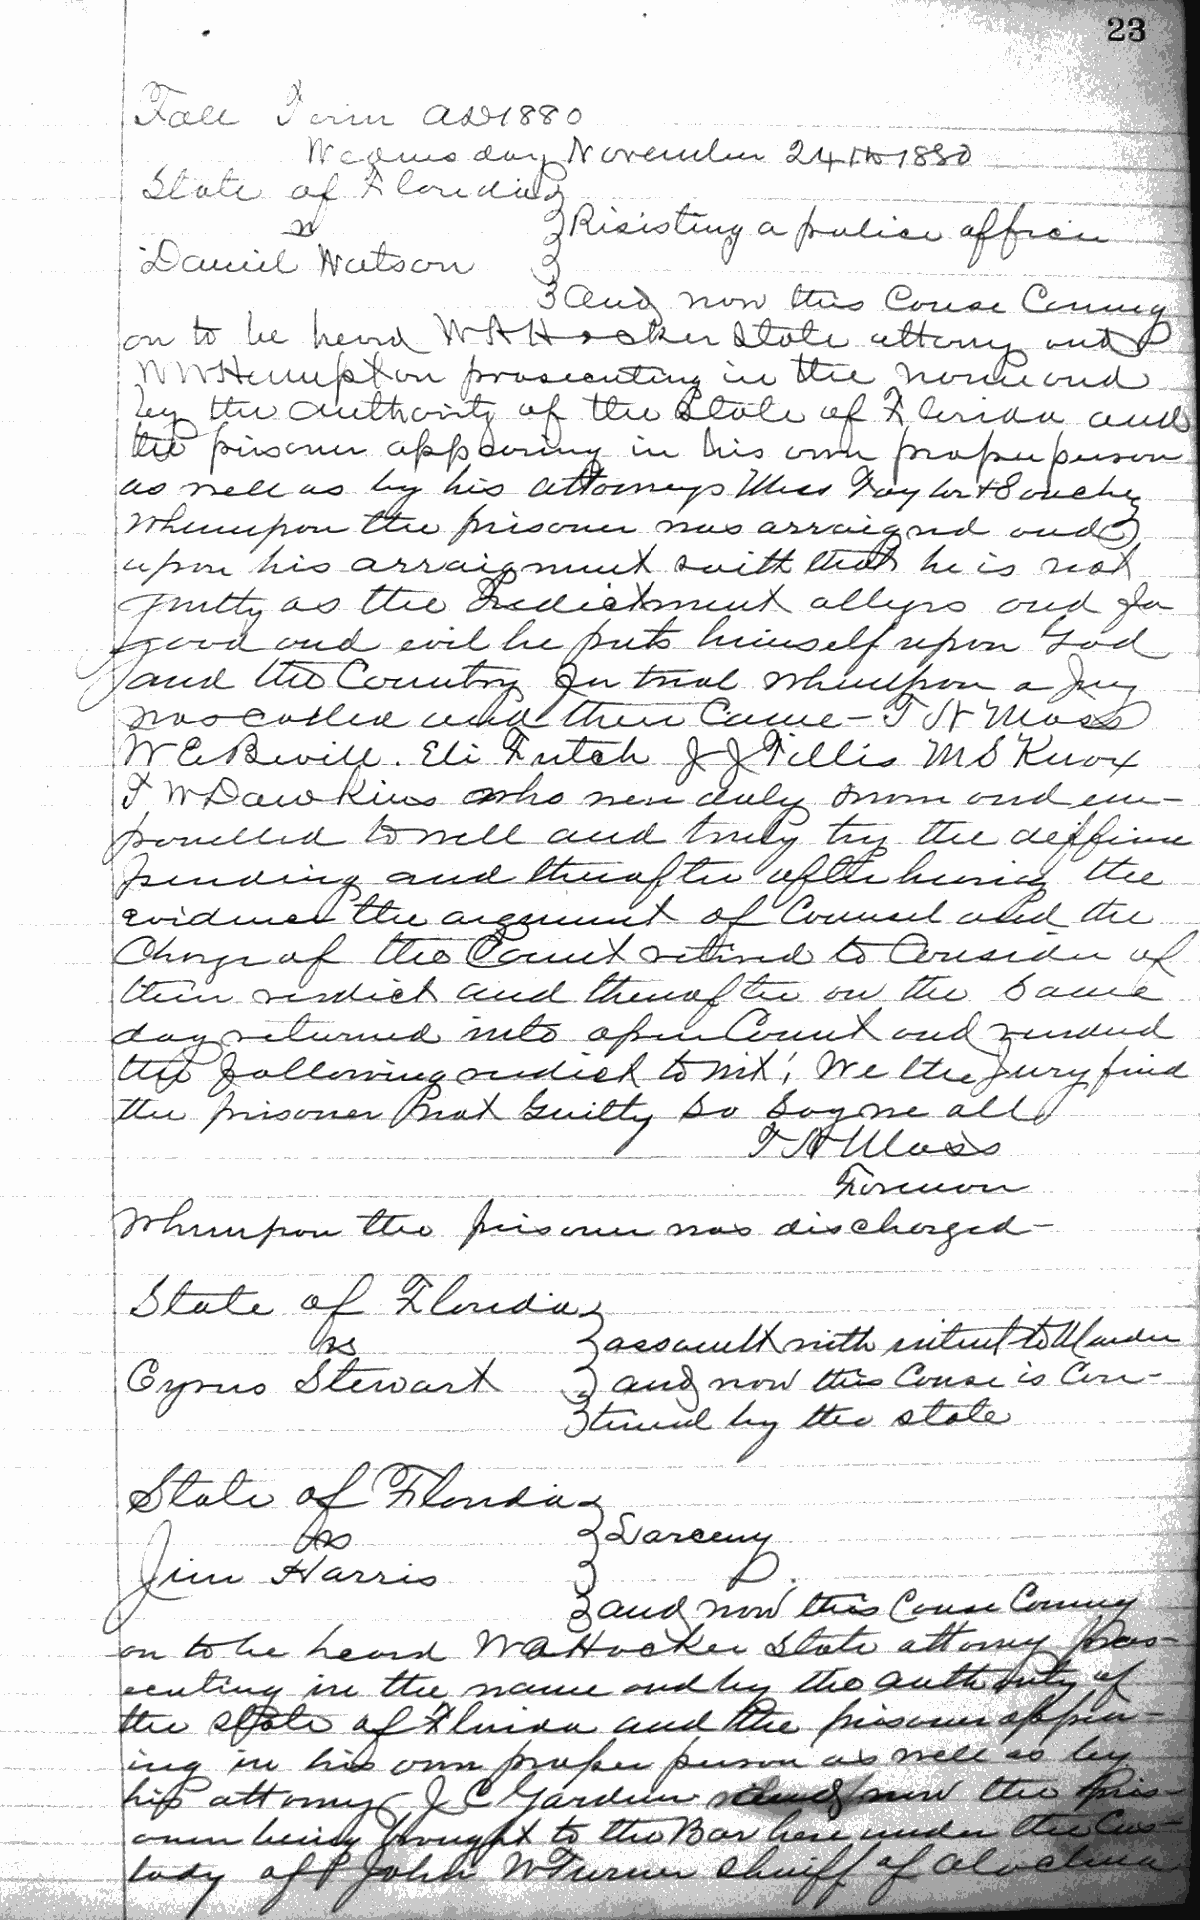 23
Fall Term AD 1880
Wednesday November 24th 1880
State of Florida
vs
Resisting a police officer
Daniel Watson
And now this Cause Coming
on to be heard W A Hocker State attorney and
W W Hampton prosecuting in the name and
by the Authority of the State of Florida and
the prisoner appearing in his own proper person
as well as by his attorneys Mess Taylor &
Whereupon the prisoner was arraigned and
upon his arraignment saith that he is not
guilty as the Indictment alleges and for
good and evil he puts himself upon God
and the Country for trial whereupon a Jury
was called and then Came - T A Moss
W E Bevill. Eli Futch J J Tillis M S Knox
F W Dawkins who were duly sworn and em-
panelled to well and truly try the
pending and thereafter after hearing the
evidence the argument of Counsel and the
Charge of the Court retired to Consider of
their verdict and thereafter on the Same
day returned into open Court and rendered
the following verdict to wit; We the Jury find
the prisoner not Guilty So Say we all
T A Moss
Foreman
Whereupon the prisoner was discharged -
State of Florida
vs
assault with intent to Murder
Cyrus Stewart
and now this Cause is Con-
tinued by the state
State of Florida
vs
Larceny
Jim Harris
and now this Cause Coming
on to be heard W A Hocker State attorney pros-
ecuting in the name and by the Authority of
the State of Florida and the prisoner appear-
ing in his own proper person as well as by
his attorney J C Gardner and now the pris-
oner being brought to the Bar here under the Cus-
tody of John W Turner Sheriff of Alachua